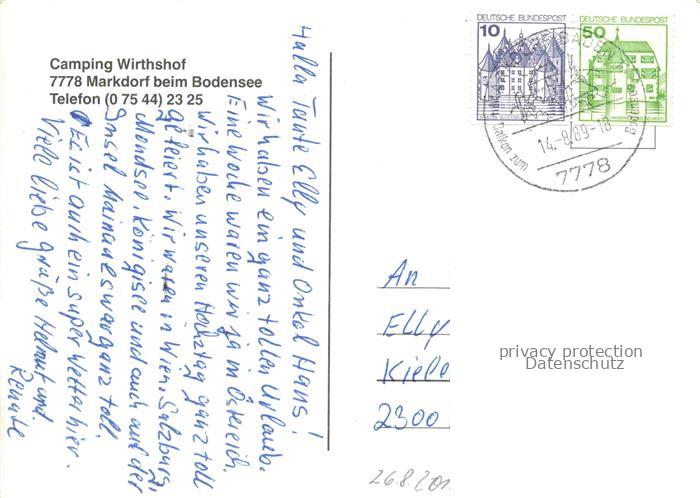 Camping Wirthshof
7778 Markdorf beim Bodensee
Telefon (0 75 44) 23 25
Hallo Tante Elly und Onkel Hans!
Wir haben ein ganz tollen Urlaub.
Eine Woche waren wir ja in Östereich.
Wir haben unseren Hochztag ganz toll
gefeiert. Wir waren in Wien, Salzburg,
Mondsee, Königisee und auch auf der
Insel Mainau es war ganz toll.
Es ist auch ein super Wetter hier.
Viele liebe Grüße Helmut und
Renate
DEUTSCHE BUNDESPOST
10
DEUTSCHE BUNDESPOST
50
14.-8.89-18
Balkon zum
Bodensee
7778
An
Elly
Kiele
2300
privacy protection
Datenschutz